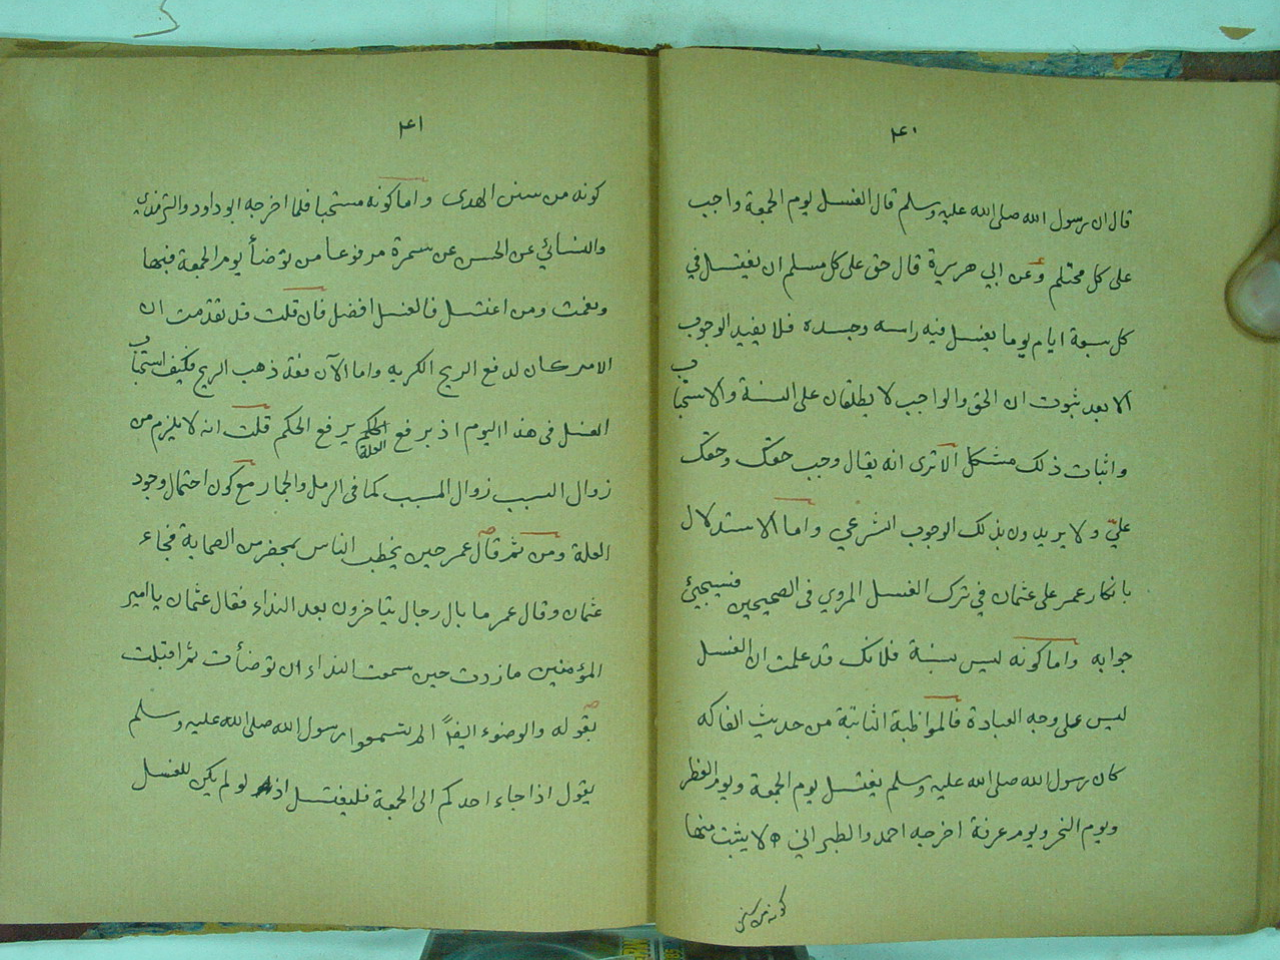 ٤٠
قال ان رسول الله صلى الله عليه وسلم قال الغسل يوم الجمعة واجب
على كل محتلم وعن ابي هريرة قال حق على كل مسلم ان يغتسل في
كل سبعة ايام يوما يغسل فيه راسه وجسده فلا يفيد الوجوب
الا بعد ثبوت ان الحق والواجب لا يطلقان على السنة والاستحباب
واثبات ذلك مشكل الا ترى انه يقال وجب حقك وحقك
علي ولا يريدون بذلك الوجوب الشرعي واما الاستدلال
بانكار عمر على عثمان في ترك الغسل المروي في الصحيحين فسيجيئ
جوابه واما كونه ليس بسنة فلانك قد علمت ان الغسل
ليس على وجه العبادة فالمواظبة الثابتة من حديث الفاكه
كان رسول الله صلى الله عليه وسلم يغتسل يوم الجمعة ويوم الفطر
ويوم النحر ويوم عرفة اخرجه احمد والطبراني لا يثبت منها
كونه من سنن
٤١
كونه من سنن الهدى واما كونه مستحبا فلما اخرجه ابو داود والترمذي
والنسائي عن الحسن عن سمرة مرفوعا من توضأ يوم الجمعة فبها
ونعمت ومن اغتسل فالغسل افضل فان قلت قد تقدمت ان
الامر كان لدفع الريح الكريه واما الآن فقد ذهب الريح فكيف استحباب
الغسل في هذا اليوم اذ برفع العلة يرفع الحكم قلت انه لا يلزم من
زوال السبب زوال المسبب كما في الرمل والجمار مع كون احتمال وجود
العلة ومن ثم قال عمر حين يخطب الناس بمحضر من الصحابة فجاء
عثمان وقال عمر ما بال رجال يتاخرون بعد النداء فقال عثمان يا امير
المؤمنين ما زدت حين سمعت النداء ان توضأت ثم اقبلت
بقوله والوضوء ايضاً الم تسمعوا رسول الله صلى الله عليه وسلم
يقول اذا جاء احدكم الى الجمعة فليغتسل اذ لو لم يكن للغسل